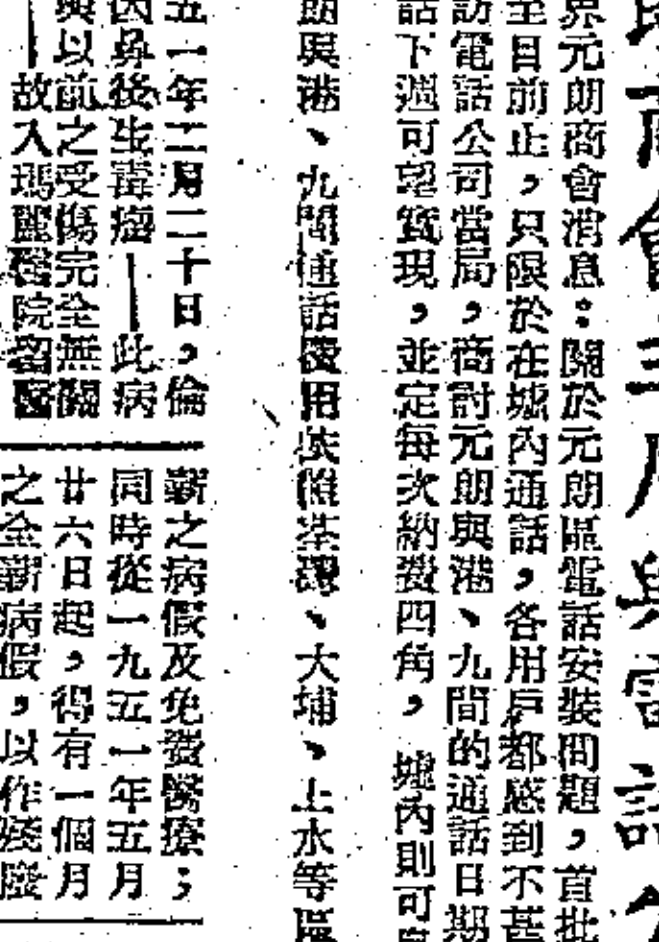 商會主席與電話
界元朗商會消息：關於元朗區電話安裝問題，首批
至目前止，只限於在墟內通話，各用戶都感到不甚
訪電話公司當局，商討元朗與港、九間的通話日期
話下週可望實現，並定每次納費四角，墟內則可
朗與港、九間通話費用依照荃灣、大埔、上水等區
五一年二月二十日，倫
因鼻後生毒瘤——此病
與以前之受傷完全無關
——故入瑪麗醫院留醫
薪之病假及免費醫療；
同時從一九五一年五月
廿六日起，得有一個月
之全薪病假，以作殘廢